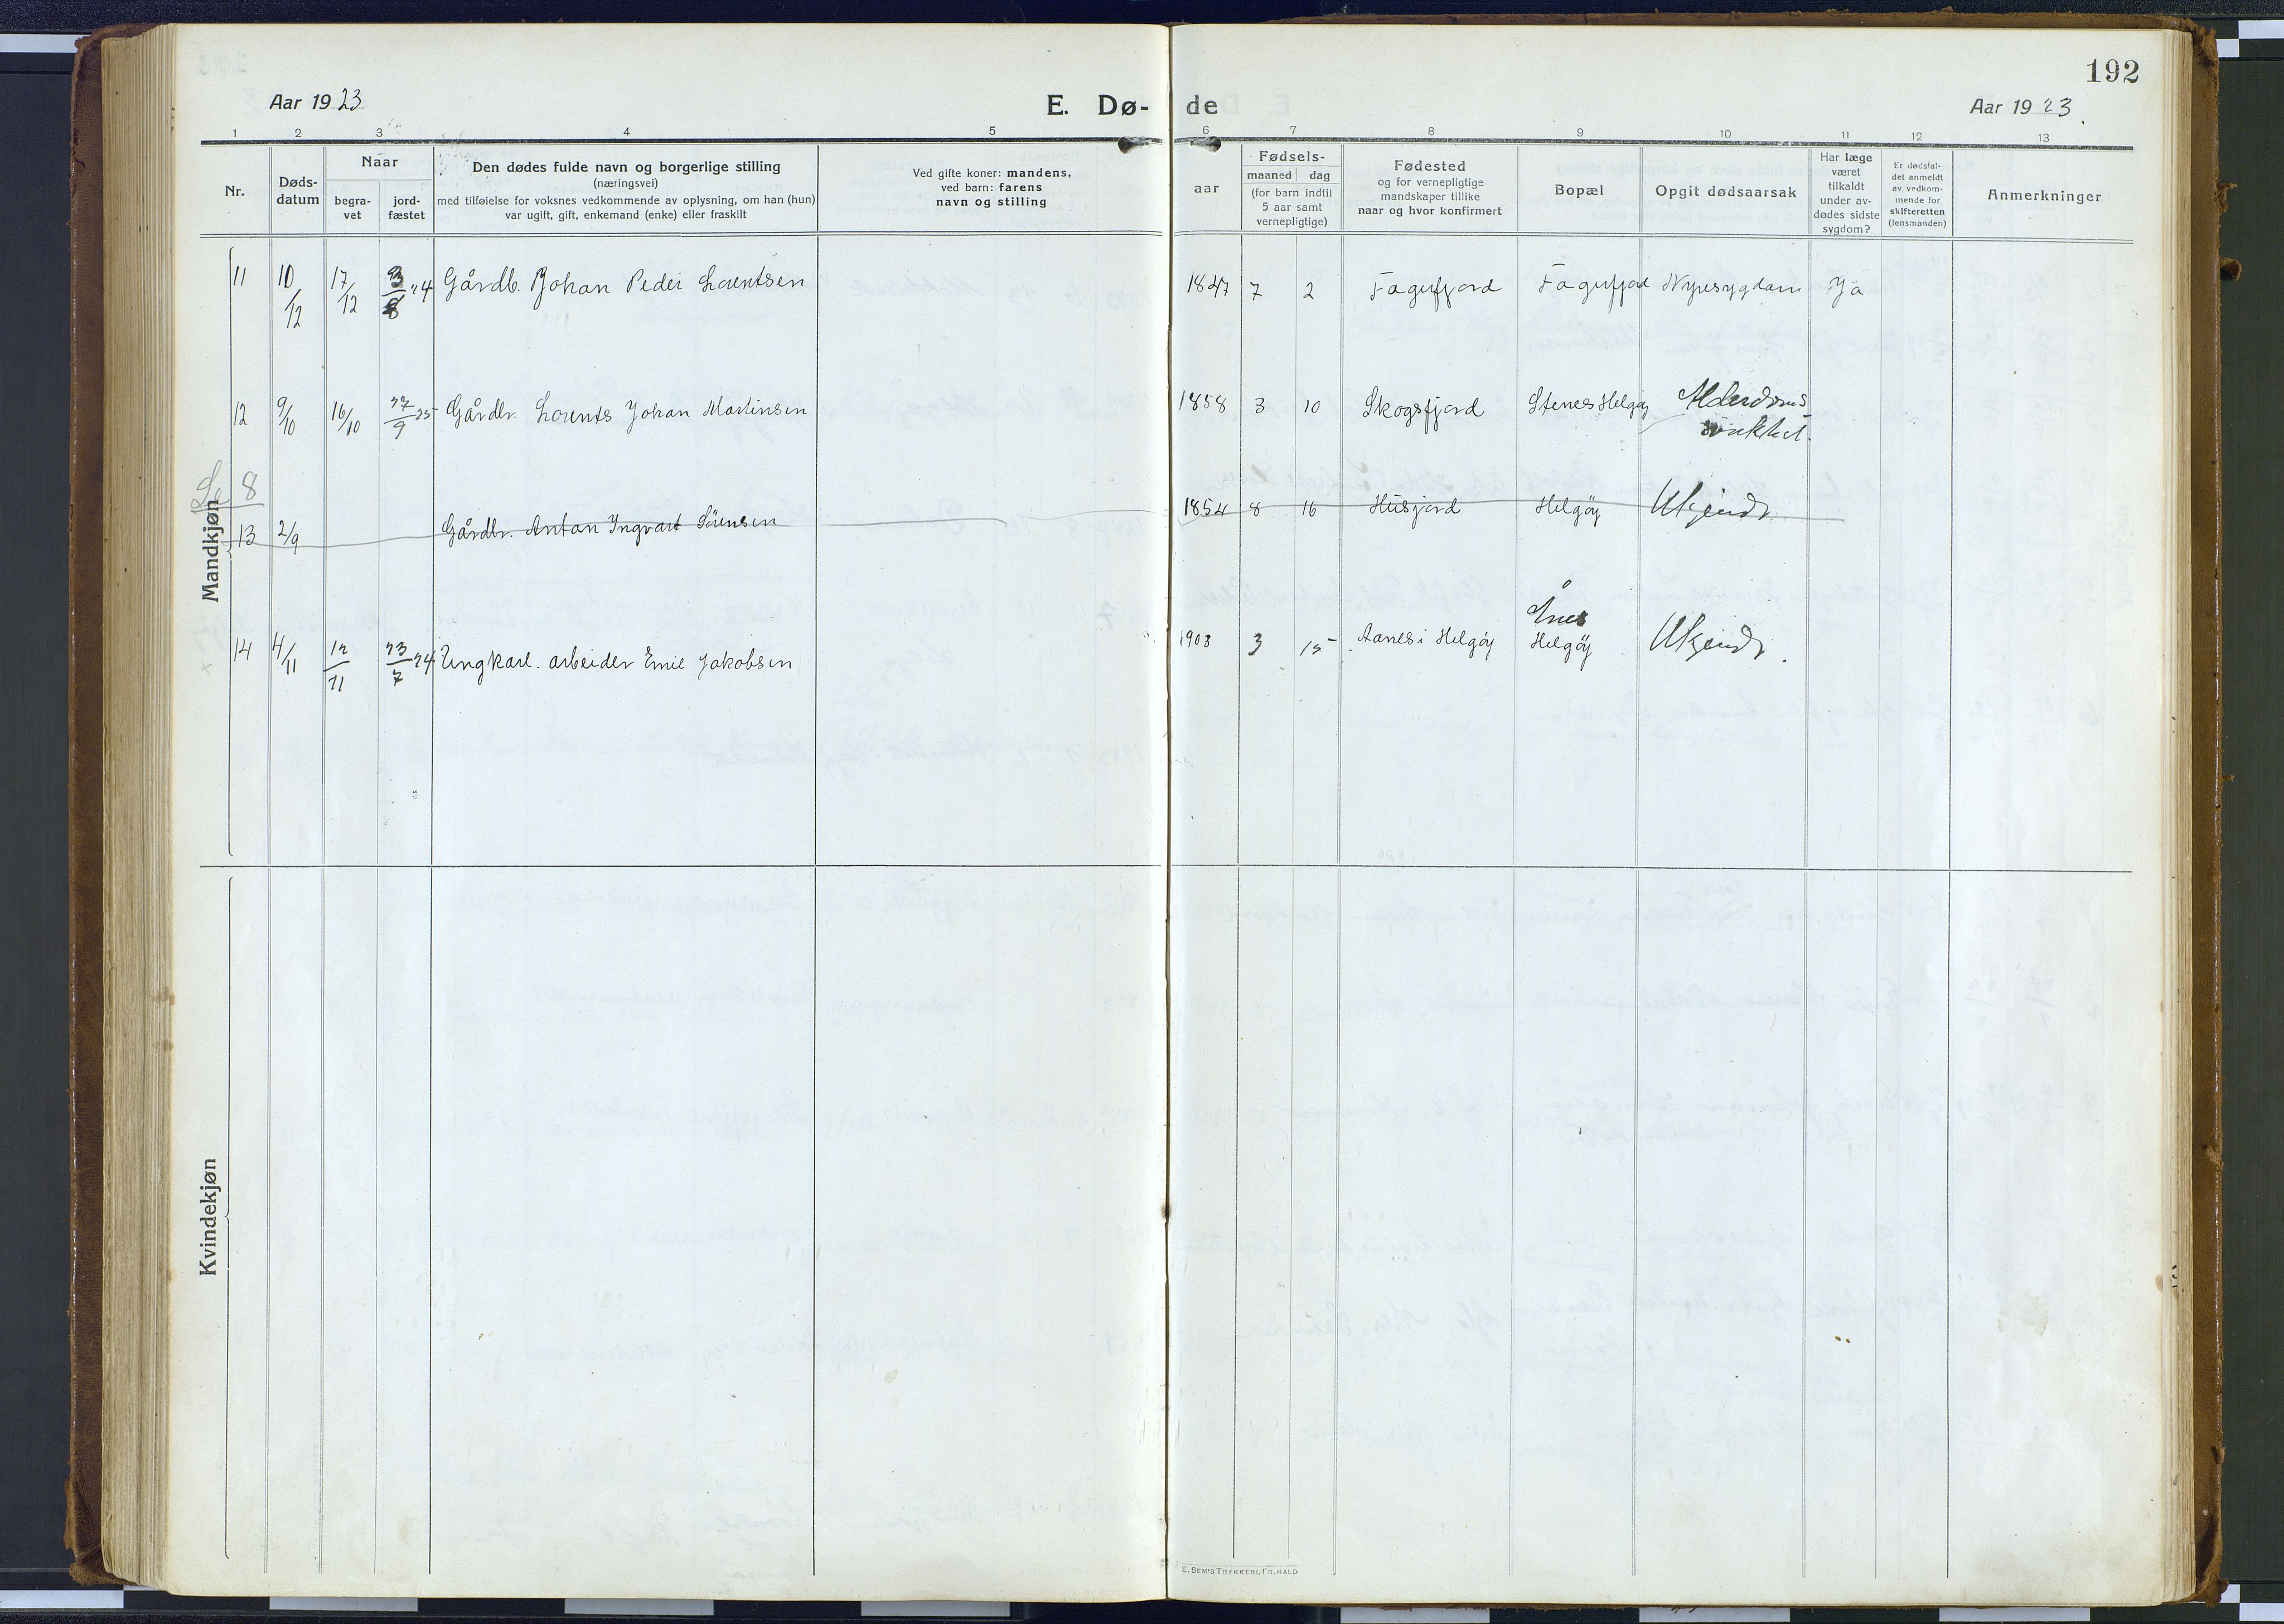 192
Aar 1923
E. Dø- de
Aar 1923.
1 2 3 4 5 6 7 8 9 10 11 12 13
Nr.
Døds-
datum
Naar
begra-
vet
jord-
fæstet
Den dødes fulde navn og borgerlige stilling
(næringsvei)
med tilføielse for voksnes vedkommende av oplysning, om han (hun)
var ugift, gift, enkemand (enke) eller fraskilt
Ved gifte koner: mandens,
ved barn: farens
navn og stilling
aar
Fødsels-
maaned dag
(for barn indtil
5 aar samt
vernepligtige)
Fødested
og for vernepligtige
mandskaper tillike
naar og hvor konfirmert
Bopæl
Opgit dødsaarsak
Har læge
været
tilkaldt
under av-
dødes sidste
sygdom?
Er dødsfal-
det anmeldt
av vedkom-
mende for
skifteretten
(lensmanden)
Anmerkninger
Mandkjøn
11 10/12 17/12 3/8 24 Gårdb. Johan Peder Lorentsen 1847 7 2 Fagerfjord Fagerfjord Nyresygdom Ja
12 9/10 16/10 27/9 25 Gårdbr. Lorents Johan Martinsen 1858 3 10 Skogsfjord Stenes Helgöy Alderdoms
svakhet.
Se 8
13 2/9 Gårdbr. Anton Ingvart Sörensen 1854 8 16 Husfjord Helgöy Ukjendt
14 4/11 12/11 23/7 24 Ungkarl. arbeider Emil Jakobsen 1903 3 15 Aanes i Helgöy Ånes
Helgöy Ukjendt.
Kvindekjøn
E. SEM'S TRYKKERI, FR. HALD